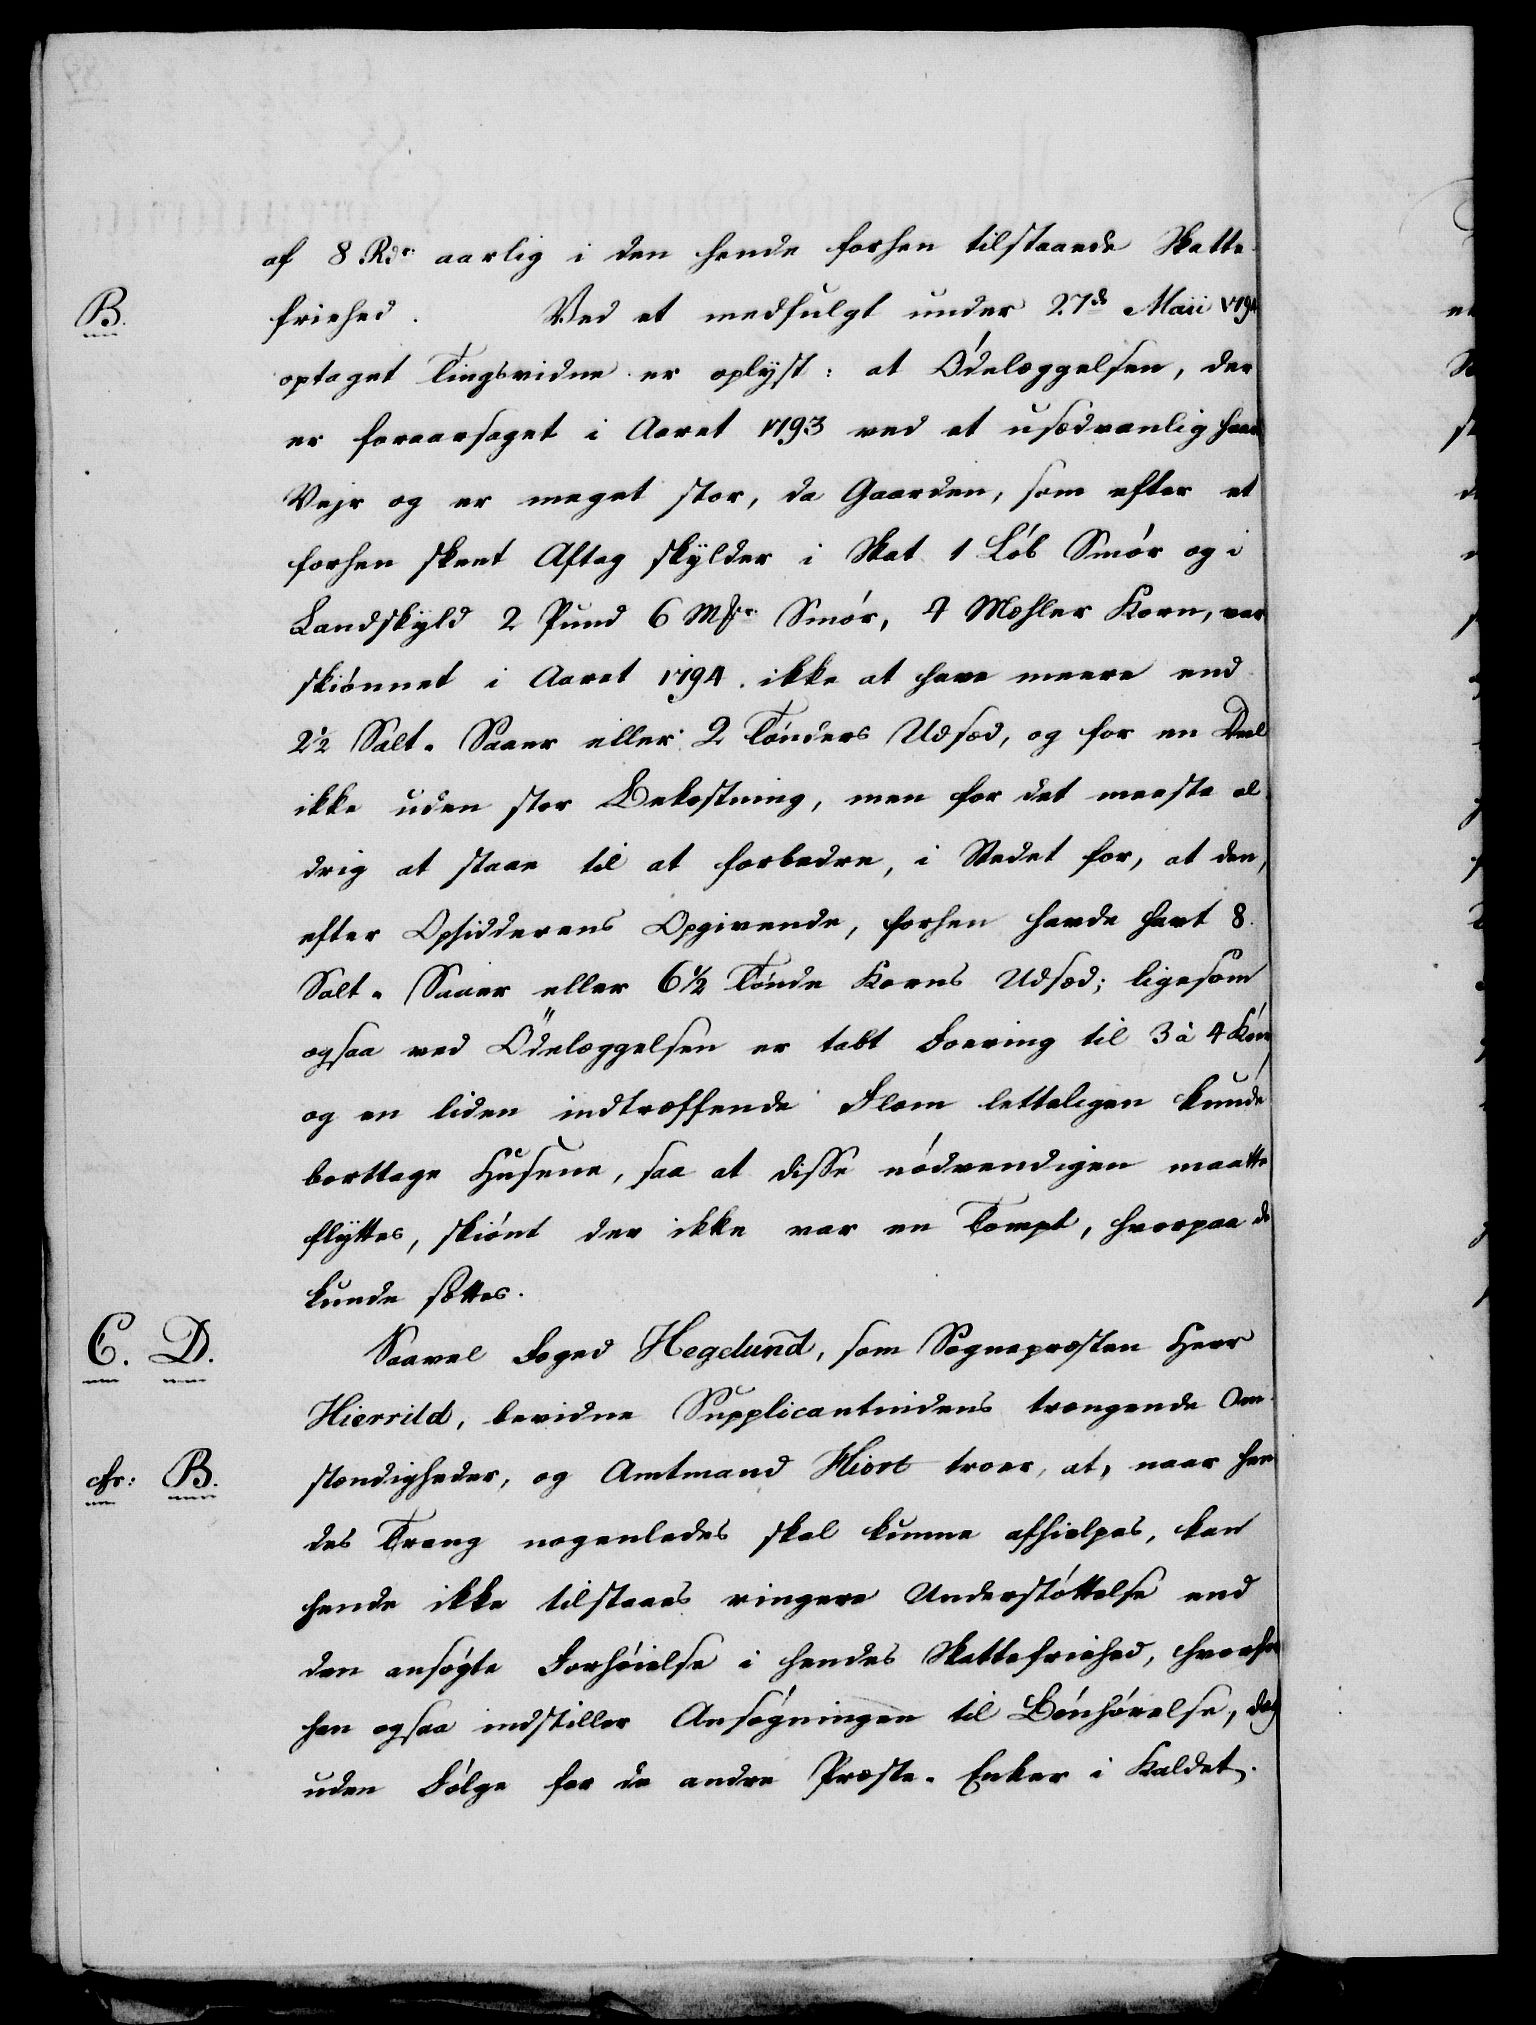 af 8 Rdr. aarlig i den hende forhen tilstaaede Skatte-
B. friehed. Ved et medfulgt under 27de Maii 1794
optaget Tingsvidne er oplyst: at Ødelæggelsen, der
er foraarsaget i Aaret 1793 ved et usædvanlig haardt
Vejr og er meget stor, da Gaarden, som efter et
forhen skeet Aftag skylder i Skat 1 Løb Smør og i
Landskyld 2 Pund 6 Mkr. Smør, 4 Mæhler Korn, var
skiønnet i Aaret 1794. ikke at have meere end
2½ Salt-Saaer eller 2 Tønders Udsæd, og for en Deel
ikke uden stor Bekostning, men for det meeste al-
drig at staae til at forbedre, i Stedet for, at den,
efter Opsidderens Opgivende, forhen havde havt 8.
Salt-Saaer eller 6½ Tønde Korns Udsæd; ligesom
ogsaa ved Ödelæggelsen er tabt Foering til 3 à 4 Køer,
og en liden indtræffende Flom letteligen kunde
borttage Husene, saa at disse nødvendigen maatte
flyttes, skiønt der ikke var en Tompt, hvorpaa de
kunde sættes.
C. D. Saavel Foged Hegelund, som Sognepræsten Herr
Hierrild, bevidne Supplicantindens trængende Om-
cfr: B. stændigheder, og Amtmand Hiort troer, at, naar hen-
des Trang nogenledes skal kunne afhielpes, kan
hende ikke tilstaaes ringere Understøttelse end
den ansøgte Forhøielse i hendes Skattefriehed, hvorfor
han ogsaa indstiller Ansøgningen til Bønhørelse, dog
uden Følge for de andre Præste-Enker i Kaldet.